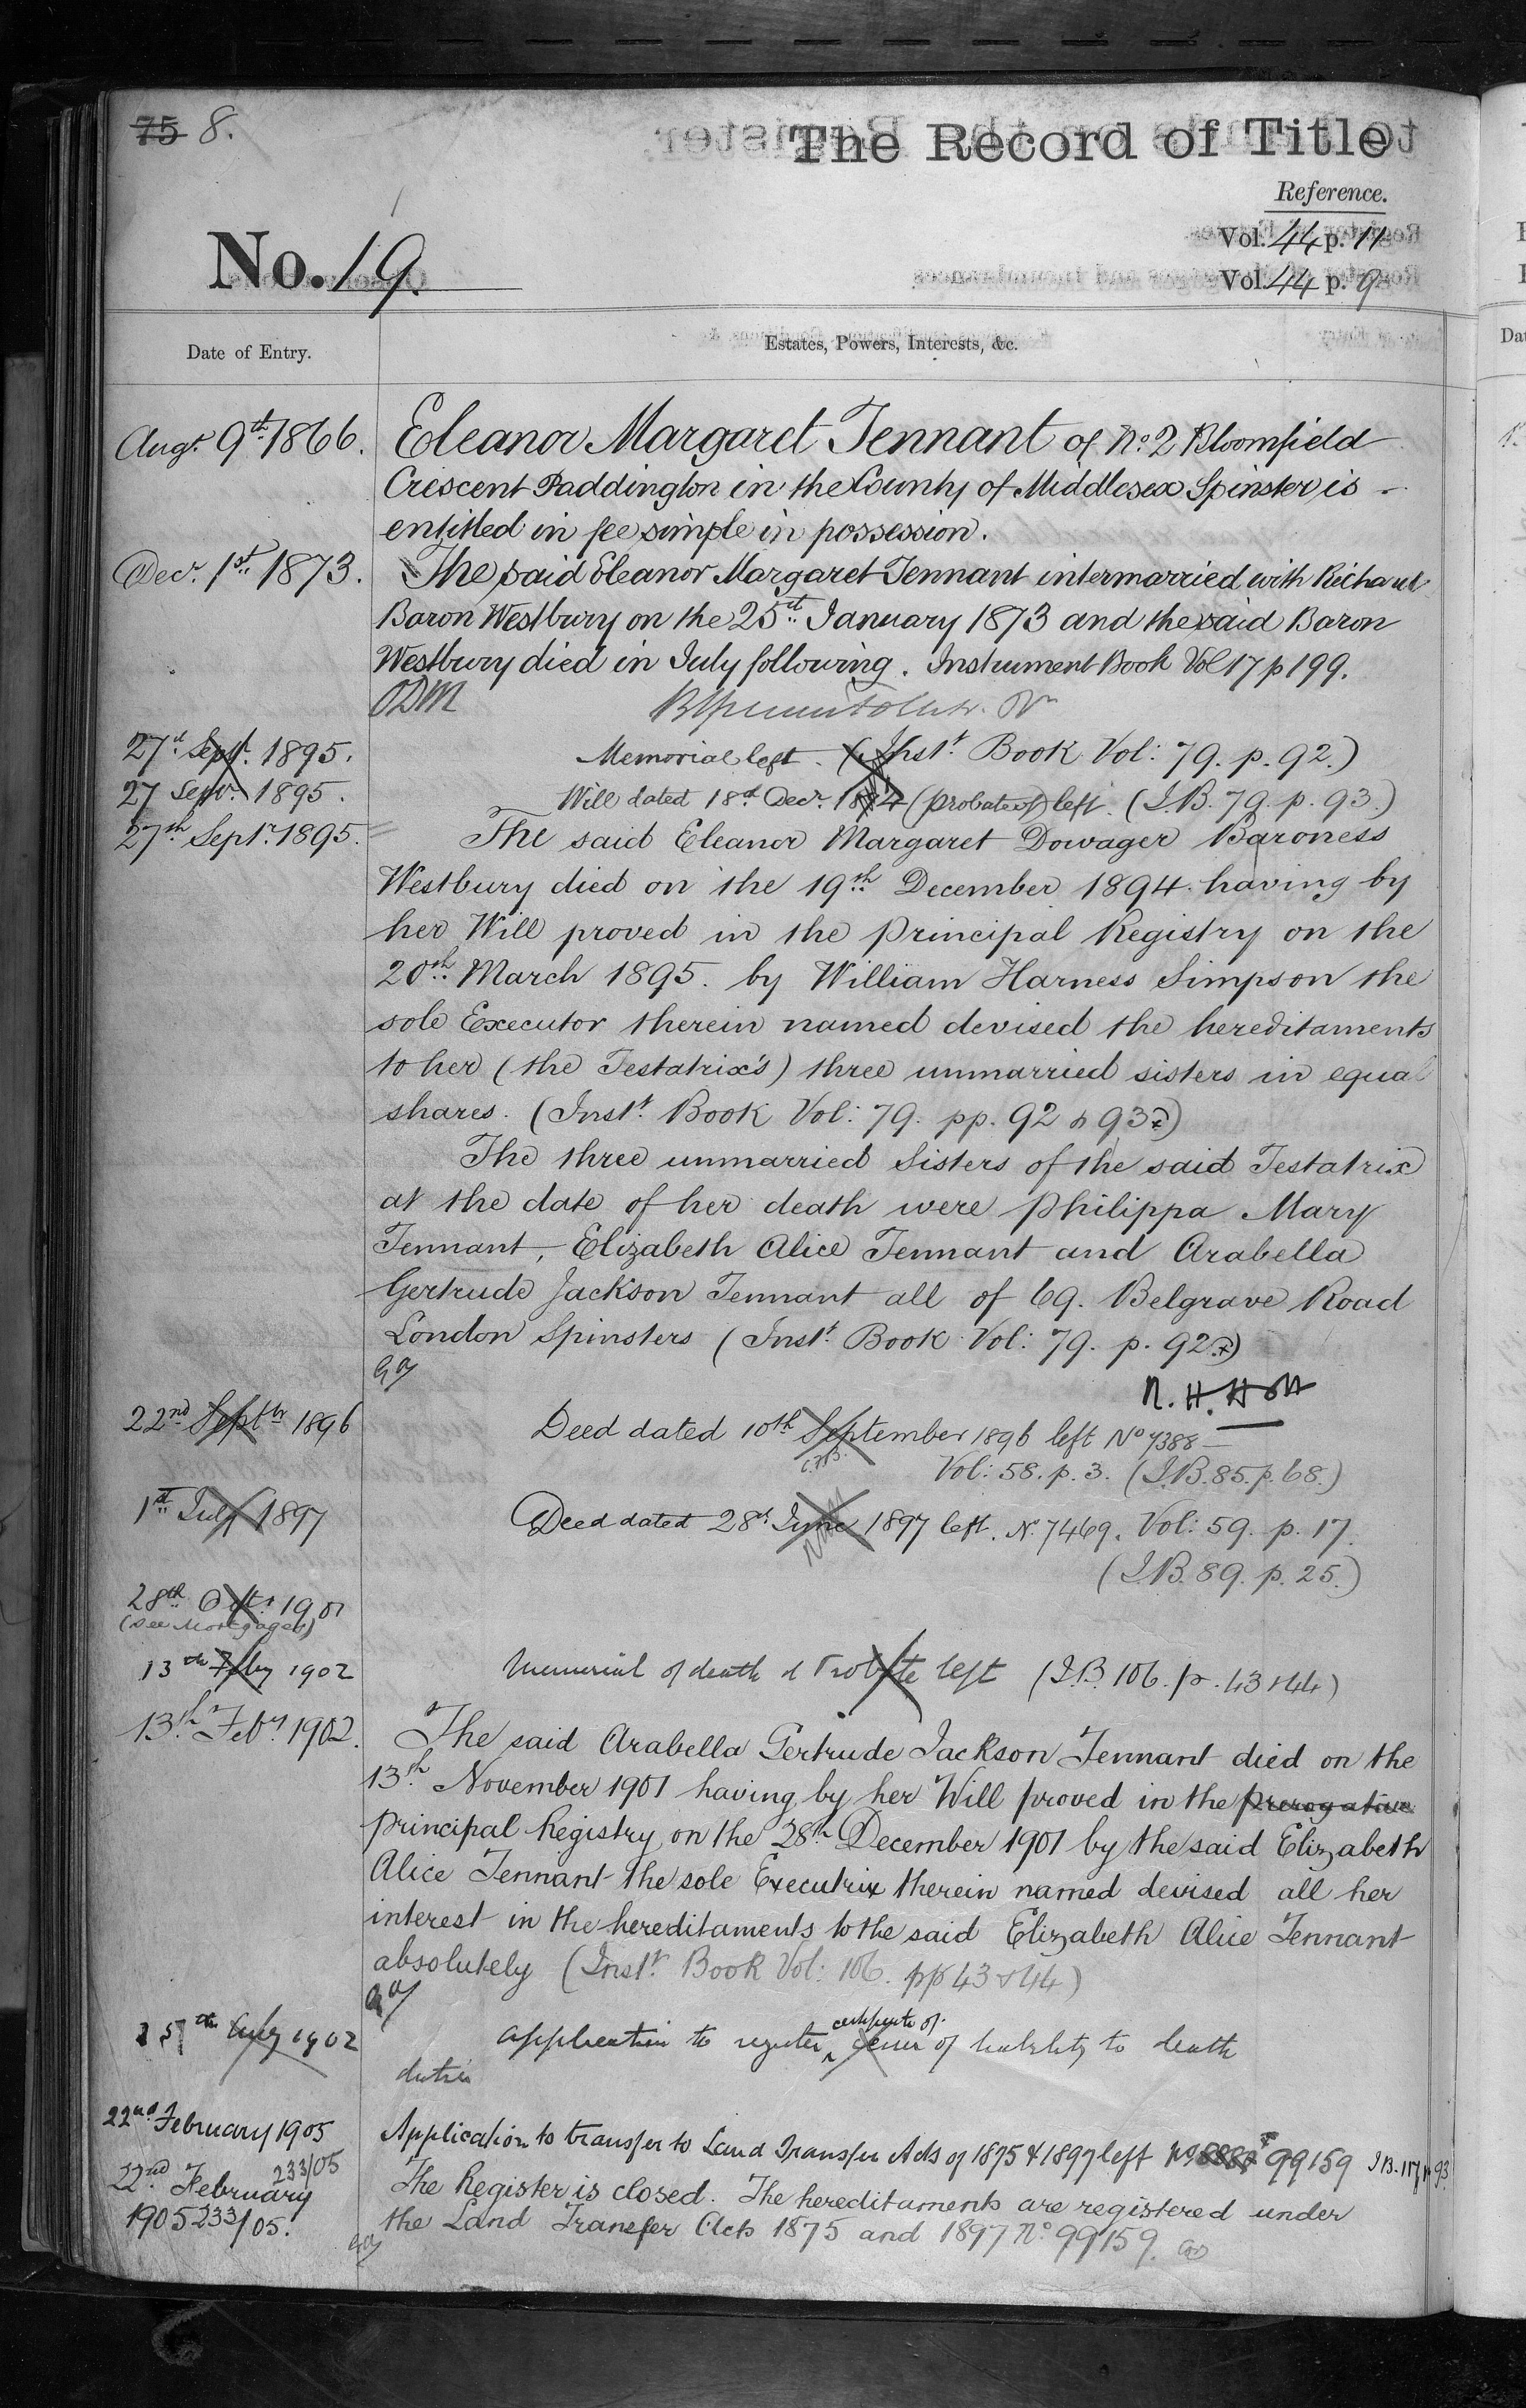 75 8.
The Record of Title
Reference.
Vol. 44 p. 11
No. 19.
Vol. 44 p. 9
Date of Entry.
Estates, Powers, Interests, &c.
Augt. 9th 1866.
Eleanor Margaret Tennant of No. 2 Bloomfield
Crescent Paddington in the County of Middlesex Spinster is
entitled in fee simple in possession.
Decr. 1st 1873.
The said Eleanor Margaret Tennant intermarried with Richard
Baron Westbury on the 25th January 1873 and the said Baron
Westbury died in July following. Instrument Book Vol 17 p 199.
ODM
27th Sept. 1895.
Memorial left. (Inst. Book Vol: 79. p. 92.)
27 Sepr. 1895.
Will dated 18th Decr. 1874 (probate of) left. (I.B. 79. p. 93.)
27th Septr. 1895.
The said Eleanor Margaret Dowager Baroness
Westbury died on the 19th December 1894 having by
her Will proved in the Principal Registry on the
20th March 1895. by William Harness Simpson the
sole Executor therein named devised the hereditaments
to her (the Testatrix's) three unmarried sisters in equal
shares. (Inst. Book Vol: 79. pp. 92 & 93)
The three unmarried Sisters of the said Testatrix
at the date of her death were Philippa Mary
Tennant, Elizabeth Alice Tennant and Arabella
Gertrude Jackson Tennant all of 69. Belgrave Road
London Spinsters (Inst. Book Vol: 79. p. 92)
22nd Septbr 1896
Deed dated 10th September 1896 left No 7388
Vol: 58. p. 3. (I.B. 85. p. 68.)
1st July 1897
Deed dated 28th June 1897 left. N. 7469. Vol: 59. p. 17.
(I.B. 89. p. 25.)
28th Octr. 1901
(See Mortgages)
13th Feby 1902
Memorial of death & Probate left (I.B. 106. p. 43 & 44)
13th Feby. 1902.
The said Arabella Gertrude Jackson Tennant died on the
13th November 1901 having by her Will proved in the prerogative
principal Registry on the 28th December 1901 by the said Elizabeth
Alice Tennant the sole Executrix therein named devised all her
interest in the hereditaments to the said Elizabeth Alice Tennant
absolutely (Inst. Book Vol: 106. pp 43 & 44)
July 1902
certificate of
Application to register of liability to death
duties
22nd February 1905
233/05
Application to transfer to Land Transfer Acts of 1875 & 1897 left 99159 I.B. 117 p 93.
22nd February
1905 233/05.
The Register is closed. The hereditaments are registered under
the Land Transfer Acts 1875 and 1897 No. 99159.